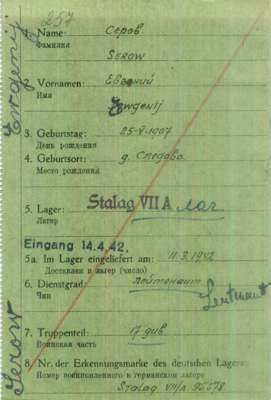 257
1. Name: Серов.
Фамилия
SEROW
2. Vornamen: Евгений
Имя
Jewgenij
3. Geburtstag: 25-V-1907
День рождения
4. Geburtsort: д. Следово
Место рождения
5. Lager: Stalag VII A лаг
Лагерь
Eingang 14.4.42,
5a. Im Lager eingeliefert am: 11.3.1942
Доставлен в лагерь (число)
6. Dienstgrad: лейтенант
Чин
Leutnant
7. Truppenteil: 17 див
Воинская часть
8. Nr. der Erkennungsmarke des deutschen Lagers
Номер военнопленного в германском лагере
Stalag VII/A 95678
Serow Jewgenij